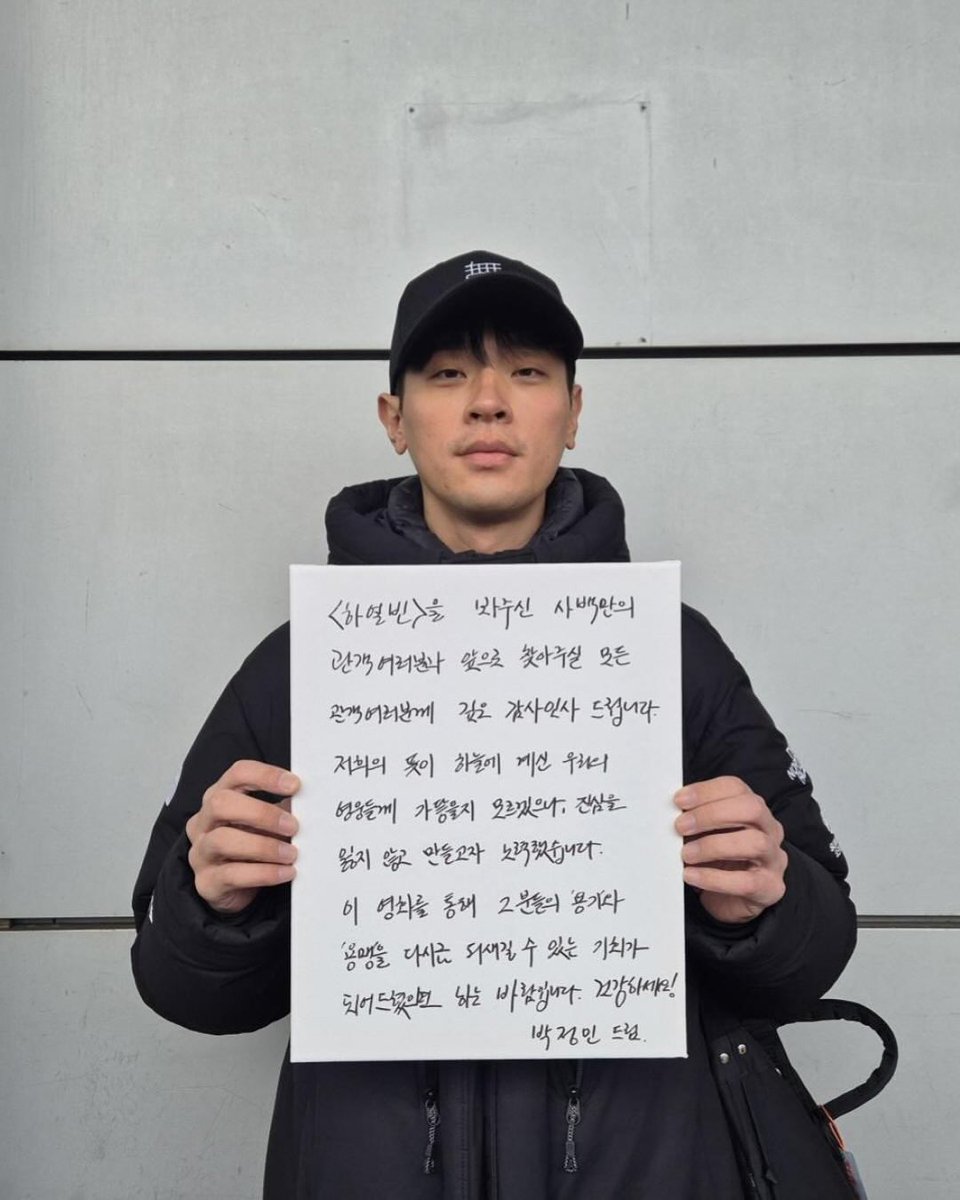 無
<하얼빈>을 봐주신 사백만의
관객여러분과 앞으로 찾아주실 모든
관객여러분께 깊은 감사인사 드립니다.
저희의 뜻이 하늘에 계신 우리의
영웅들께 가 닿을지 모르겠으나, 진심을
잃지 않고 만들고자 노력했습니다.
이 영화를 통해 그분들의 용기와
용맹을 다시금 되새길 수 있는 기회가
되어드렸으면 하는 바람입니다. 건강하세요!
박정민 드림.